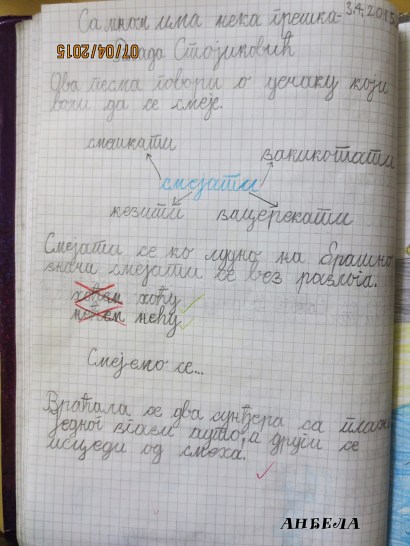 Са мном има нека грешка- 3.4.2015.
07/04/2015
Влада Стојиковић
Ова песма говори о дечаку који
воли да се смеје.
смешкати закикотати
смејати
кезити зацерекати
Смејати се ко лудо на брашно
значи смејати се без разлога.
хоћем хоћу
нећем нећу
Смејемо се...
Враћала се два сунђера са плаже
једног згази ауто, а други се
исцеди од смеха.
АНЂЕЛА